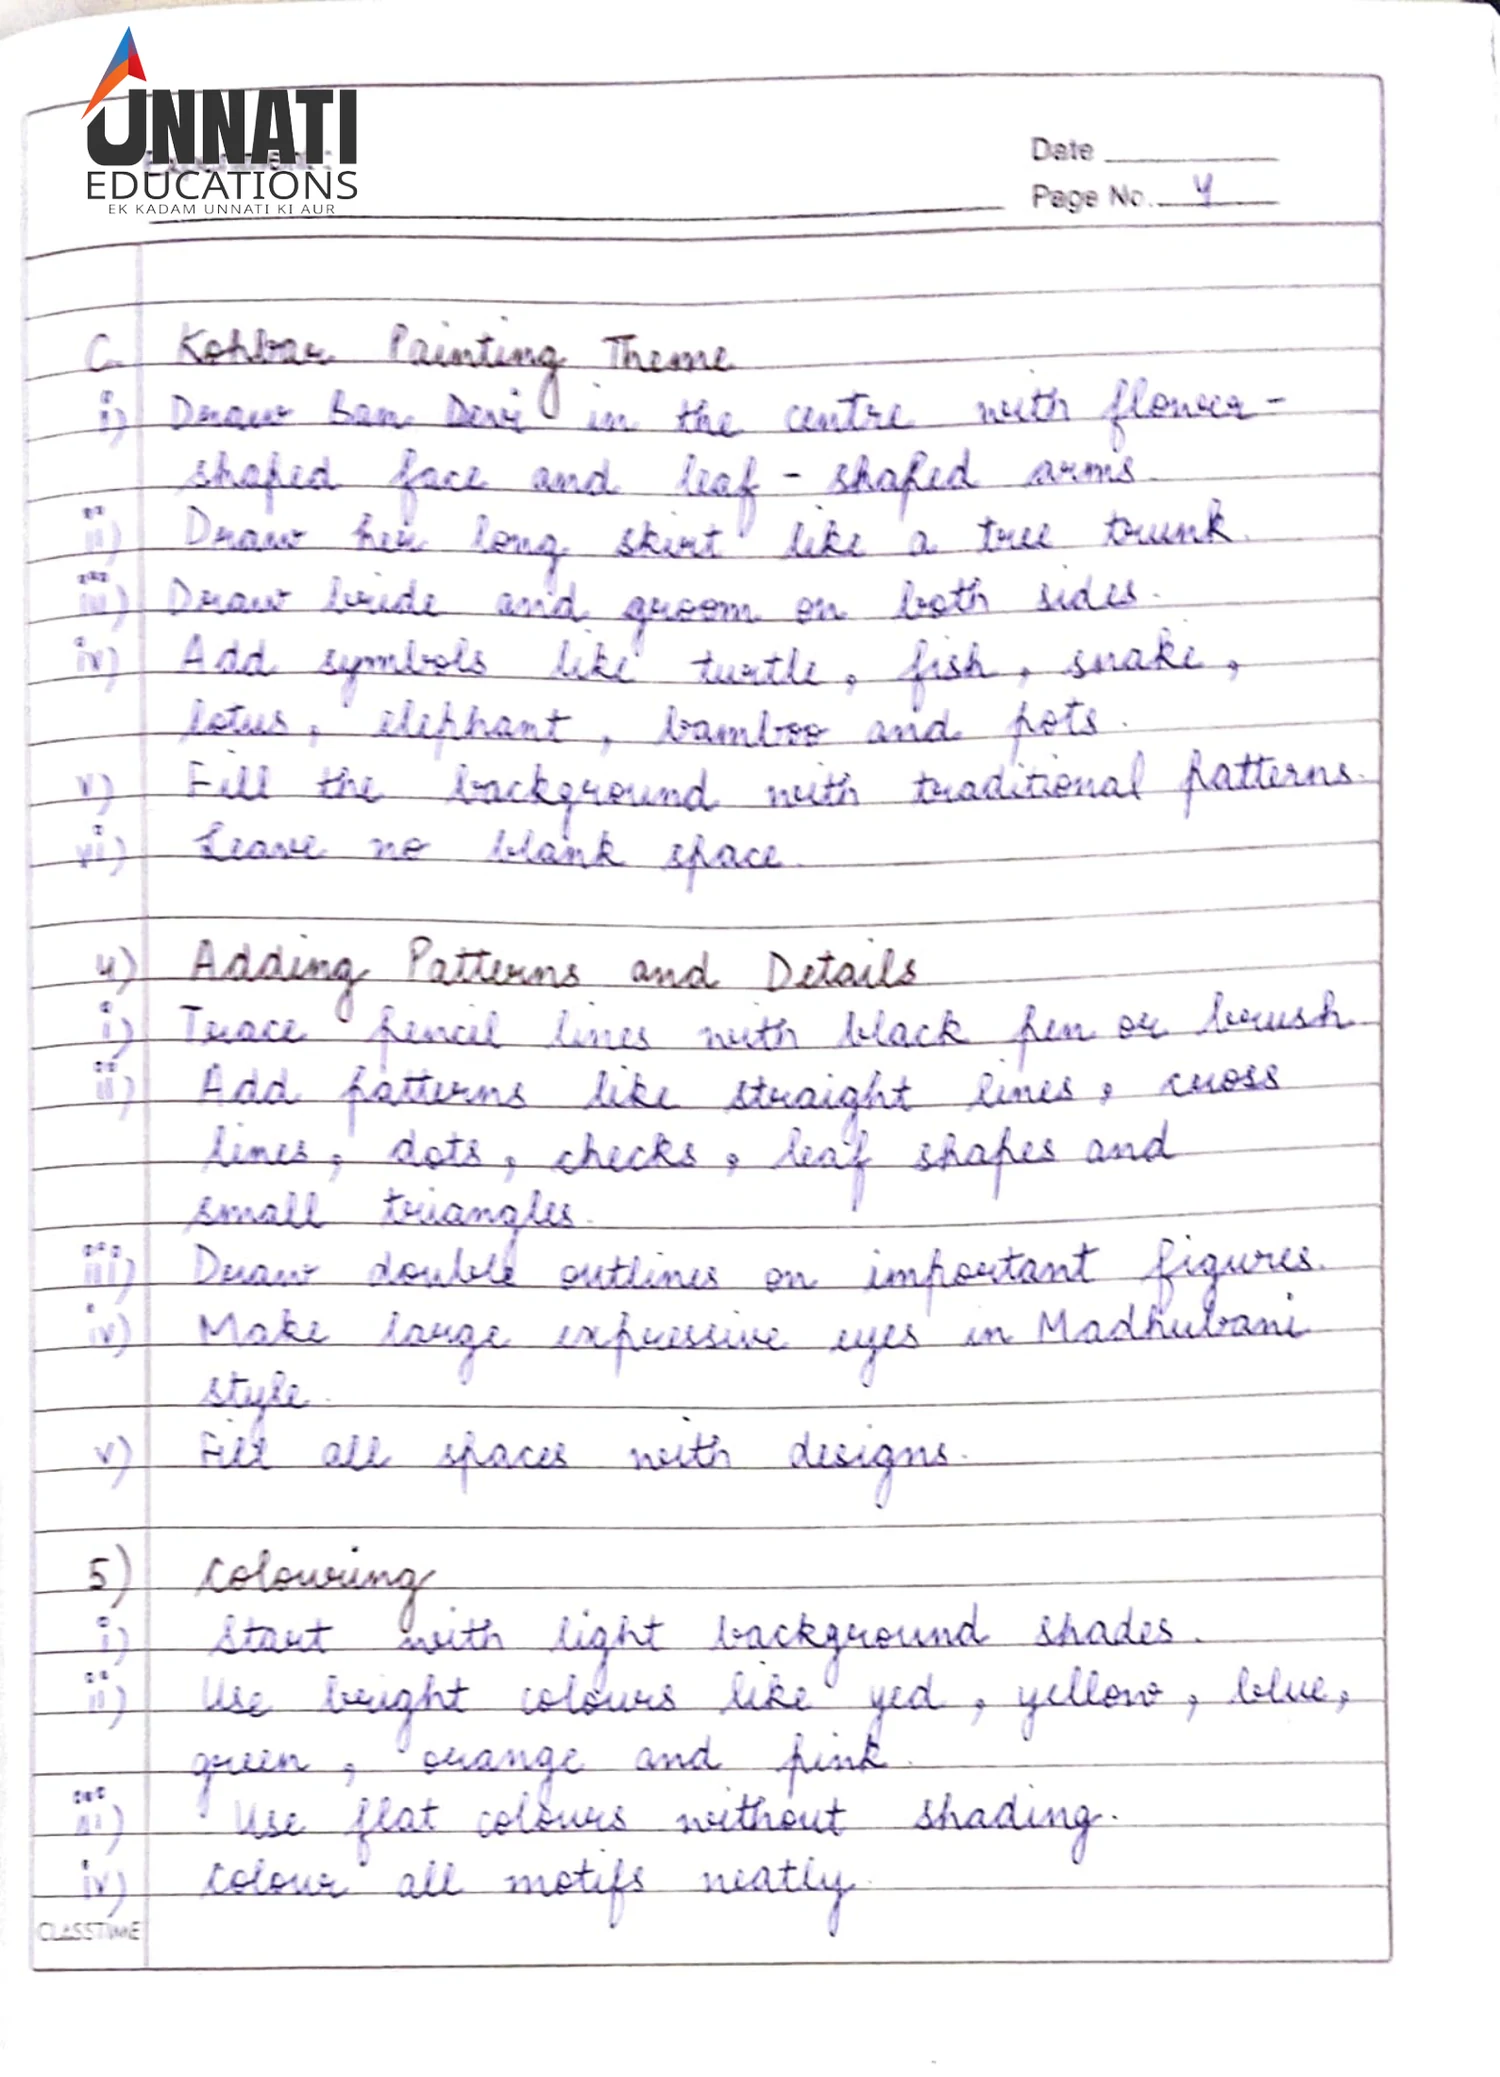 UNNATI
EDUCATIONS
EK KADAM UNNATI KI AUR
Date
Page No. 4
C. Kohbar Painting Theme
i) Draw Ban Devi in the centre with flower-
shaped face and leaf - shaped arms.
ii) Draw her long skirt like a tree trunk.
iii) Draw bride and groom on both sides.
iv) Add symbols like turtle, fish, snake,
lotus, elephant, bamboo and pots.
v) Fill the background with traditional patterns.
vi) Leave no blank space.
4) Adding Patterns and Details
i) Trace pencil lines with black pen or brush
ii) Add patterns like straight lines, cross
lines, dots, checks, leaf shapes and
small triangles.
iii) Draw double outlines on important figures.
iv) Make large expressive eyes in Madhubani
style.
v) Fill all spaces with designs.
5) Colouring
i) Start with light background shades.
ii) Use bright colours like yed, yellow, blue,
green, orange and pink.
iii) Use flat colours without shading.
iv) Colour all motifs neatly.
CLASSTIME